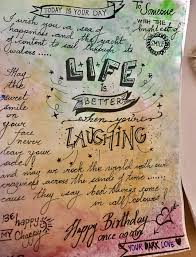 TODAY IS YOUR DAY
To Someone
WITH THE
BRIGHTEST
SMILE
I wish you a sea of
happiness and the yacht
of content to sail through its
LIFE
IS
BETTER
when you're
LAUGHING
May
the
sweet
smile
on
your
face
never
leave
your
and may we rock the world with our
across the sands of time
because they say best things come
in all colours
BE
happy
MY
Happy Birthday
once again
YOUR DARK LOVE